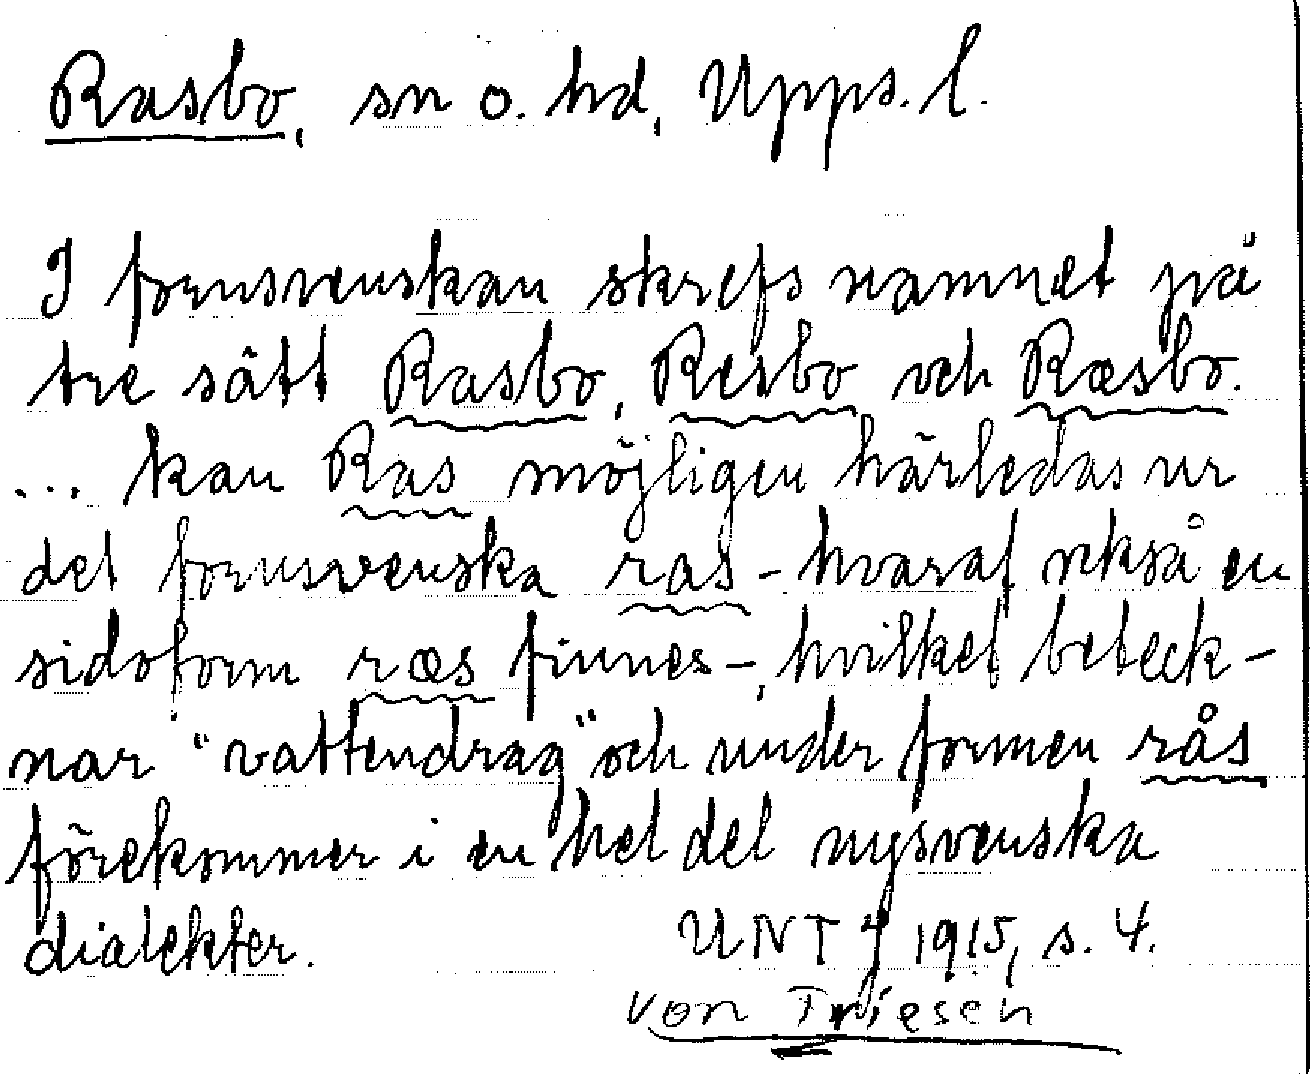 Rasbo, sn o. hd, Upps. l.
I fornsvenskan skrefs namnet på
tre sätt Rasbo, Resbo och Ræsbo.
... kan Ras möjligen härledas ur
det fornsvenska ras - hvaraf också en
sidoform ræs finnes -, hvilket beteck-
nar "vattendrag" och under formen rås
förekommer i en hel del nysvenska
dialekter.
UNT 1915, s. 4.
von Friesen